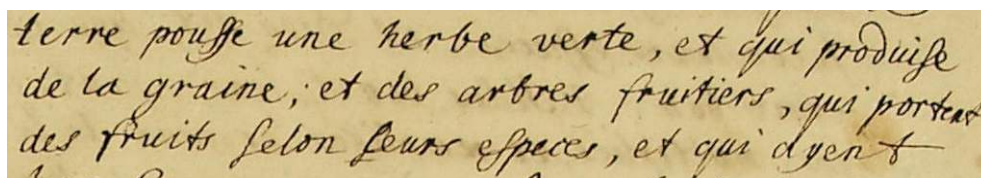 terre pousse une herbe verte, et qui produise
de la graine; et des arbres fruitiers, qui portent
des fruits selon leurs especes, et qui ayent